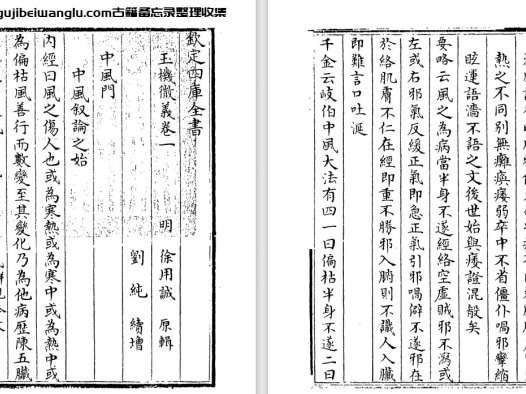 gujibeiwanglu.com古籍备忘录整理收集
欽定四庫全書
玉機微義卷一
明 徐用誠 原輯
劉純 續增
中風門
中風敘論之始
內經曰風之傷人也或為寒熱或為熱中或為寒中或
為偏枯風善行而數變至其變化乃為他病歷陳五臟
熱之不同別無癱瘓痿弱卒中不省僵仆喎邪攣縮
眩運語濇不語之文後世始與痿證混殽矣
要略云風之為病當半身不遂經絡空虛賊邪不瀉或
左或右邪氣反緩正氣即急正氣引邪喎僻不遂邪在
於絡肌膚不仁在經即重不勝邪入腑則不識人入臟
即難言口吐涎
千金云岐伯中風大法有四一曰偏枯半身不遂二曰